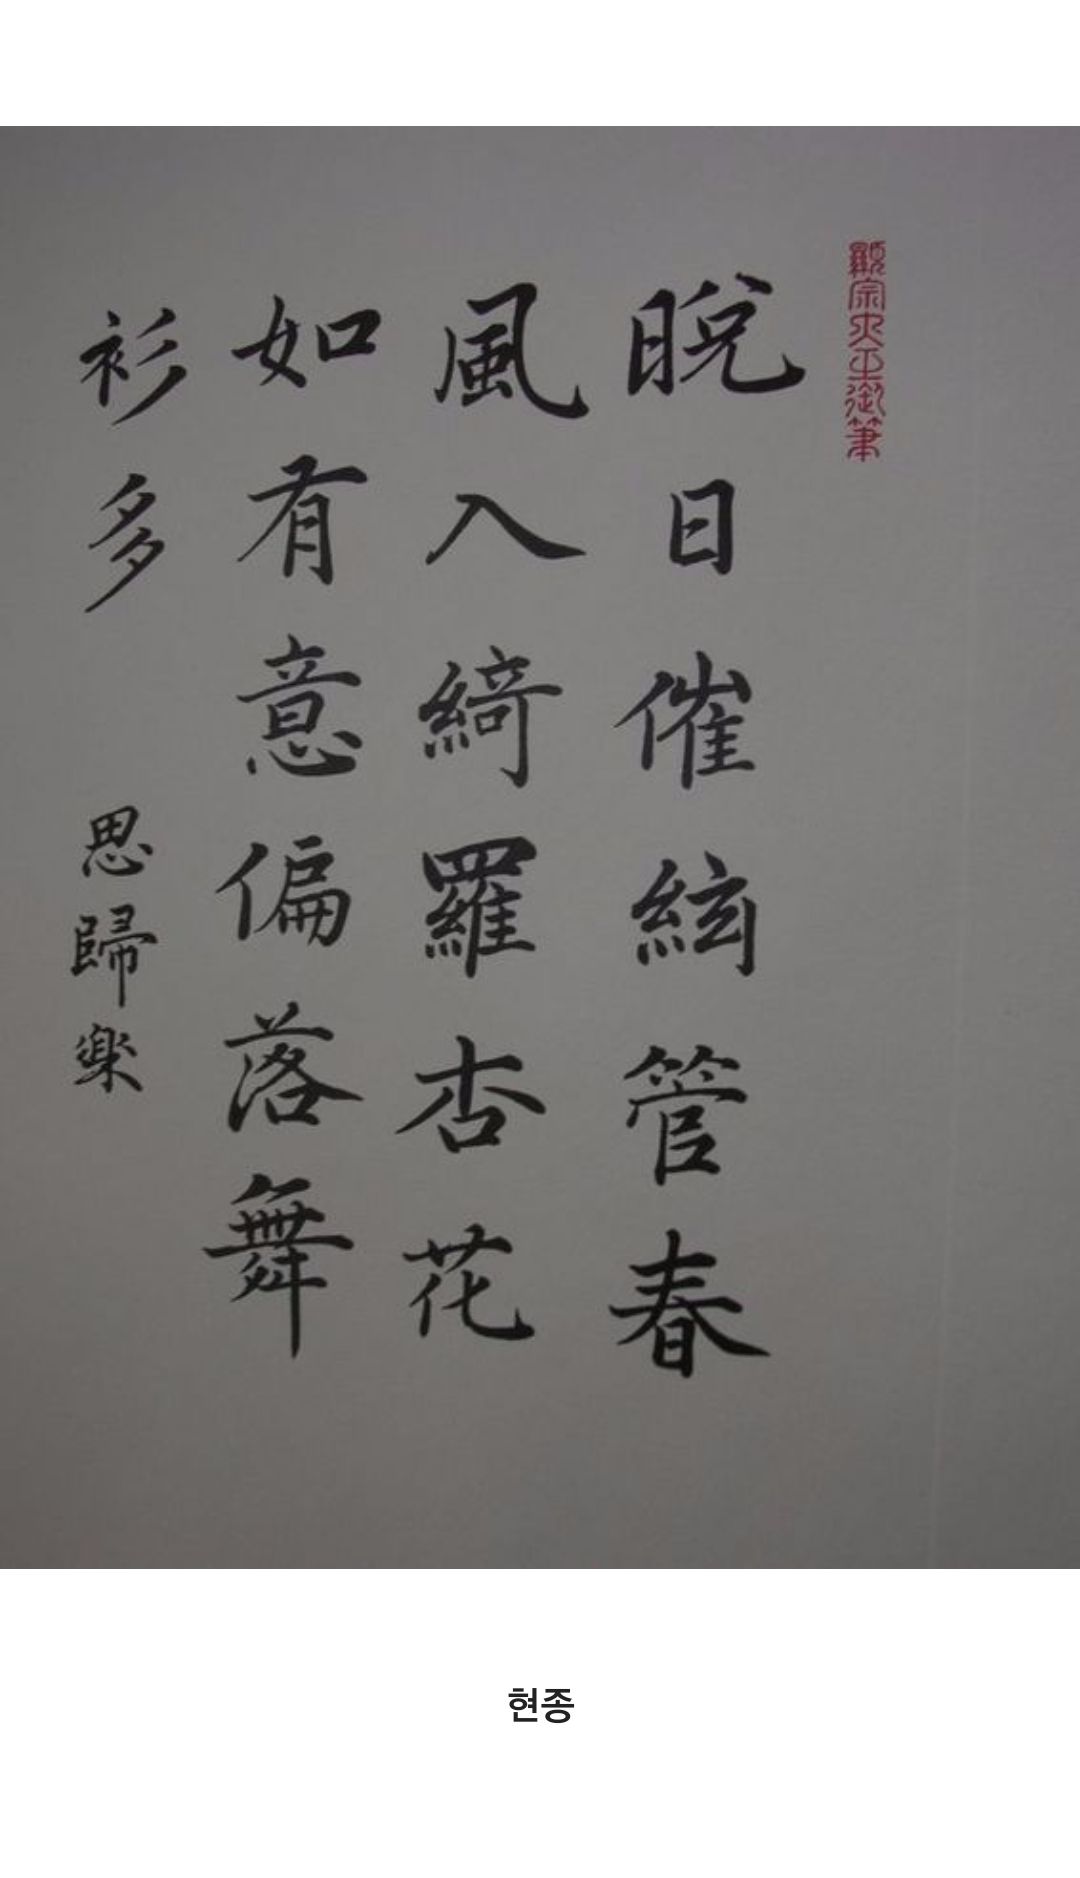 顯宗大王御筆
晩日催絃管春
風入綺羅杏花
如有意偏落舞
衫多
思歸楽
현종